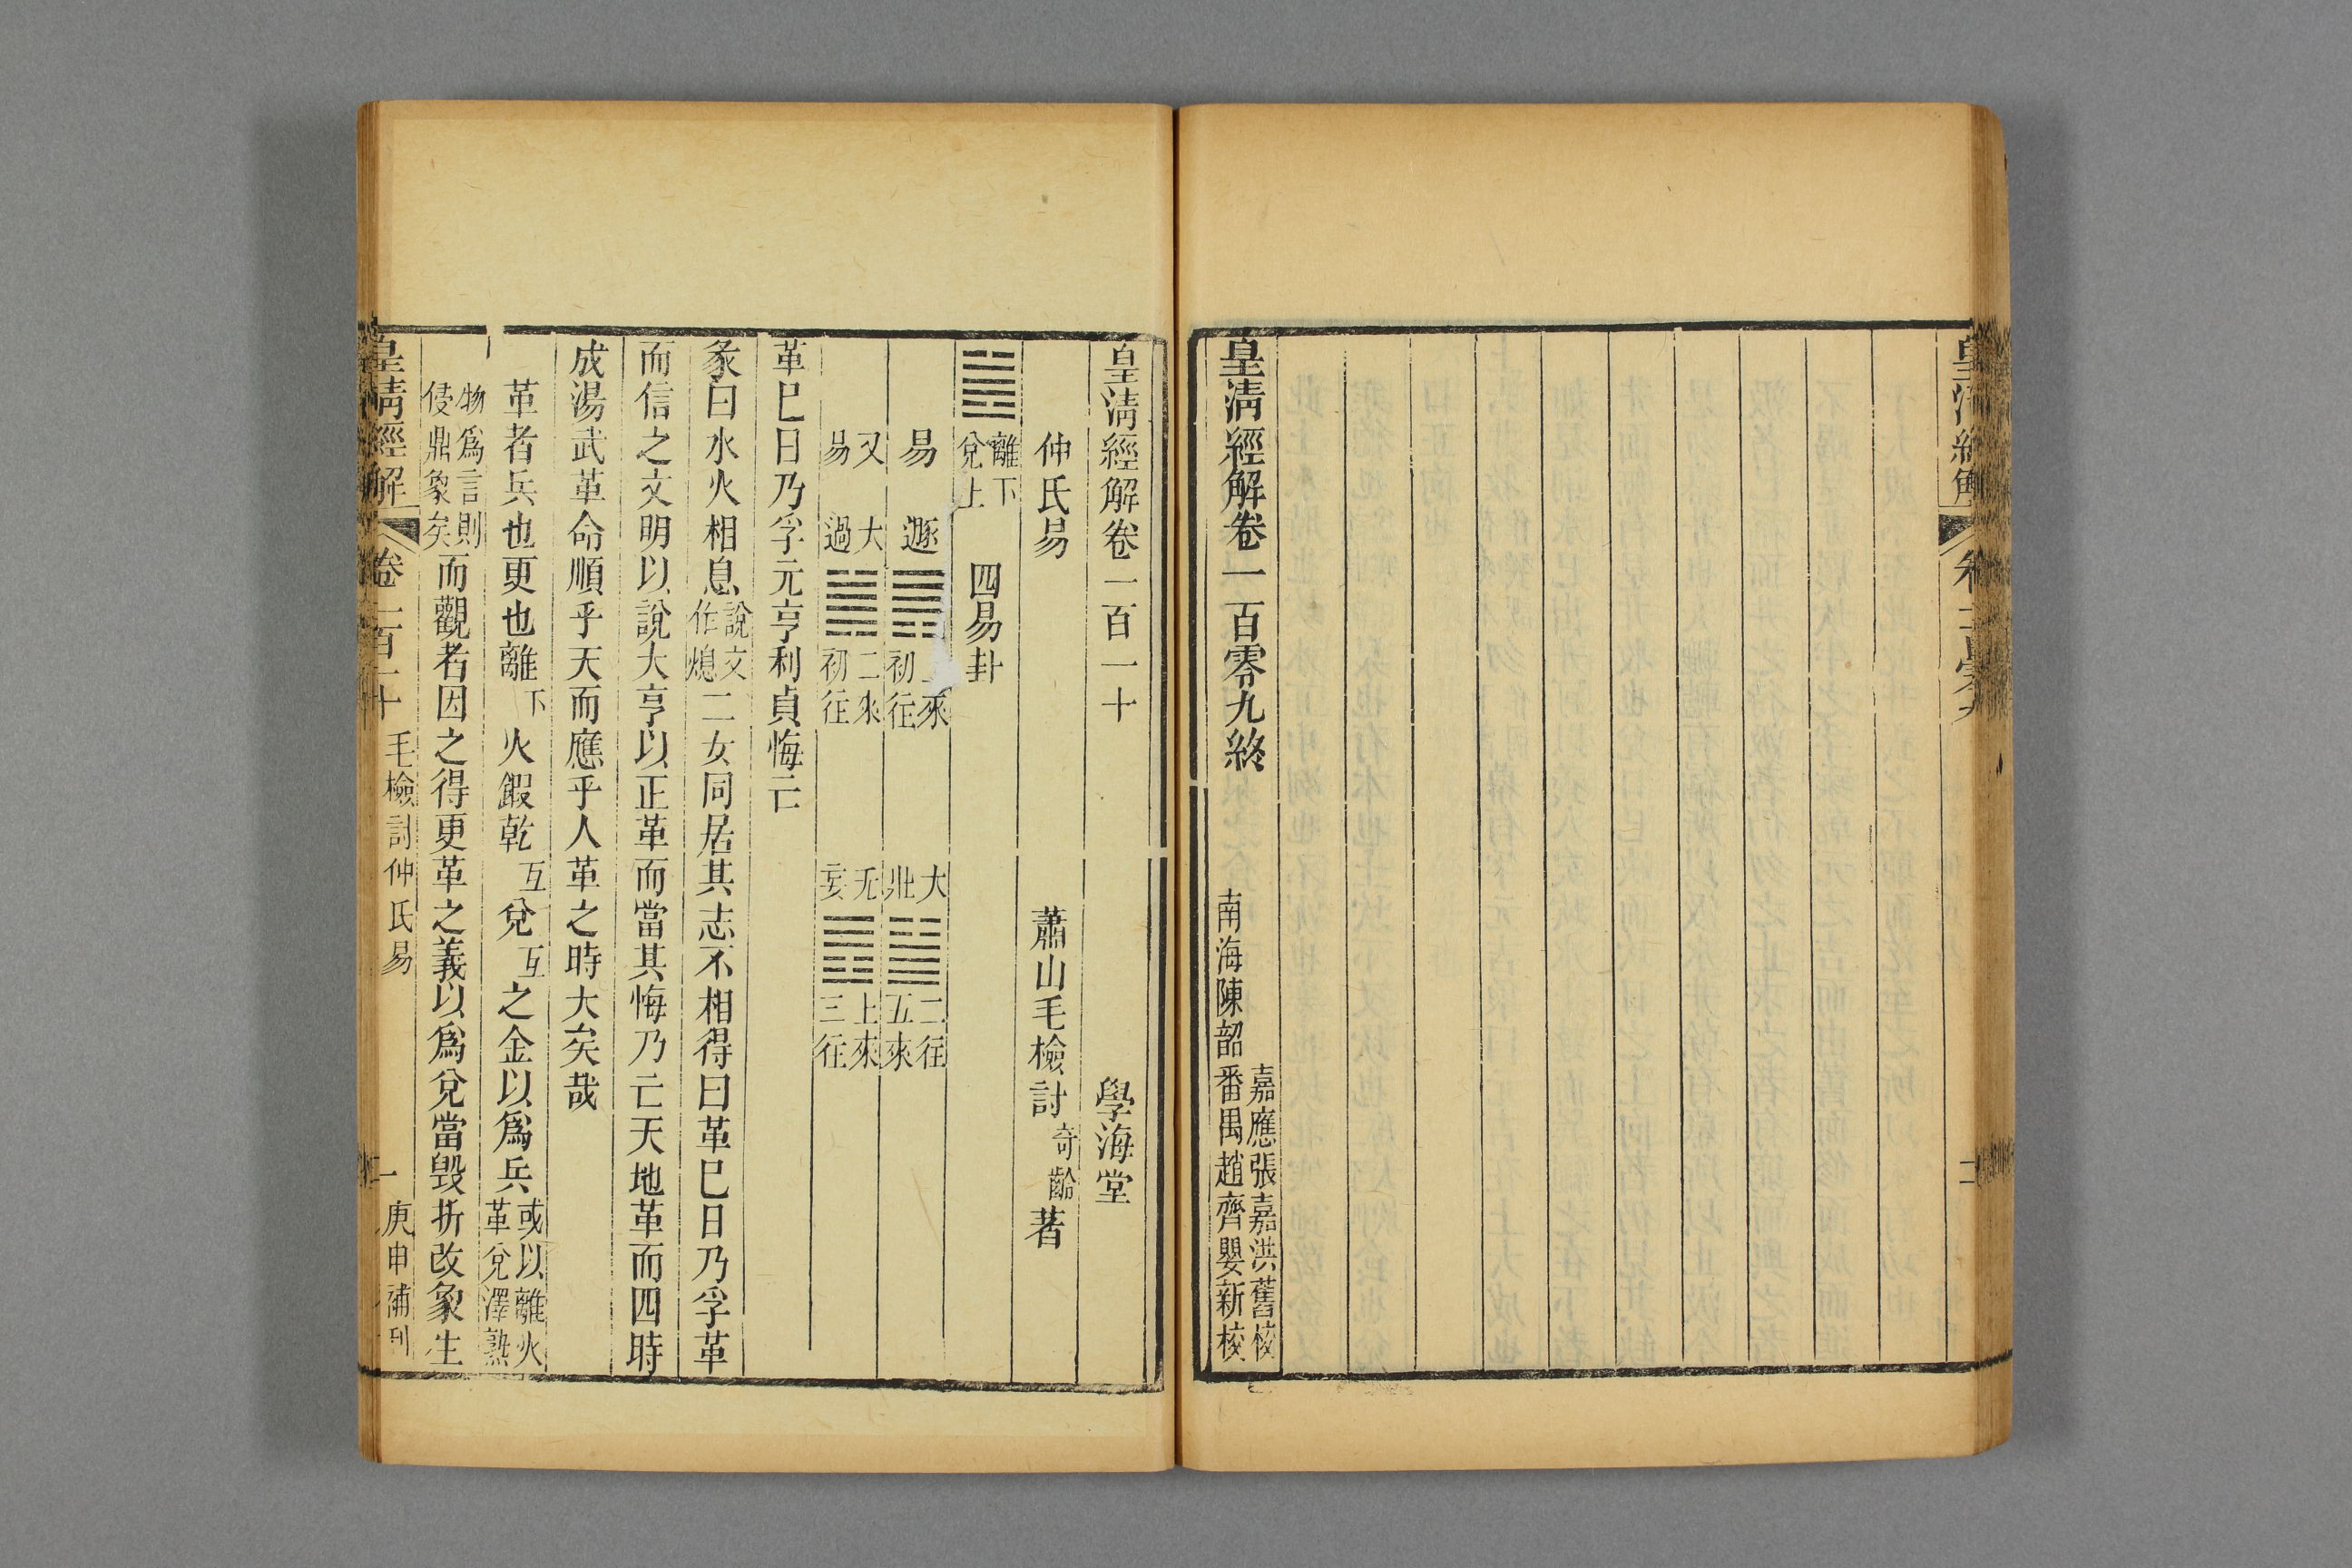 皇清經解卷一百零九終
南海陳韶
嘉應張嘉洪舊校
番禺趙齊嬰新校
皇清經解卷一百一十 學海堂
仲氏易 蕭山毛檢討奇齡著
離下
兌上
四易卦
易 遯 來
初往
大
壯
二往
五來
又
易
大
過
二來
初往
无
妄
上來
三往
革巳日乃孚元亨利貞悔亡
彖曰水火相息說文
作熄二女同居其志不相得曰革巳日乃孚革
而信之文明以說大亨以正革而當其悔乃亡天地革而四時
成湯武革命順乎天而應乎人革之時大矣哉
革者兵也更也離下火鍜乾互兌互之金以爲兵或以離火
革兌澤熟
物爲言則
侵鼎象矣而觀者因之得更革之義以爲兌當毀折改象生
皇清經解 卷一百一十 毛檢討仲氏易 一 庚申補刊